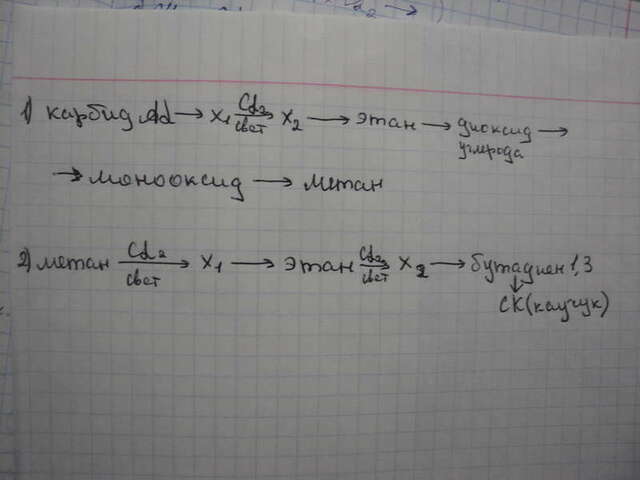 1) карбид Al → X₁ Cl₂ свет → X₂ → этан → диоксид углерода →
→ монооксид → метан
2) метан Cl₂ свет → X₁ → этан Cl₂ свет → X₂ → бутадиен 1,3
↓
СК (каучук)